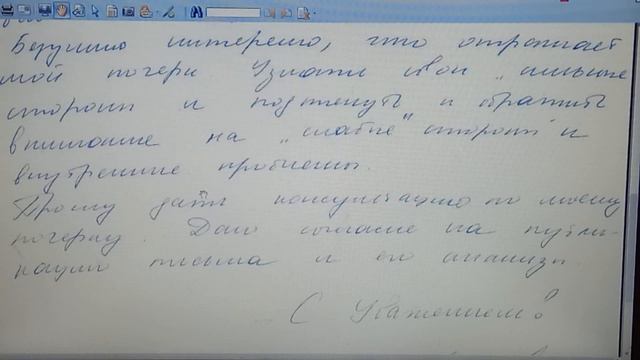 Безумно интересно, что отражает
мой почерк. Узнать свои „сильные
стороны и подтянуть и обратить
внимание на „слабые" стороны и
внутренние проблемы.
Прошу дать консультацию по моему
почерку. Даю согласие на публи-
кацию письма и его анализы.
С Уважением